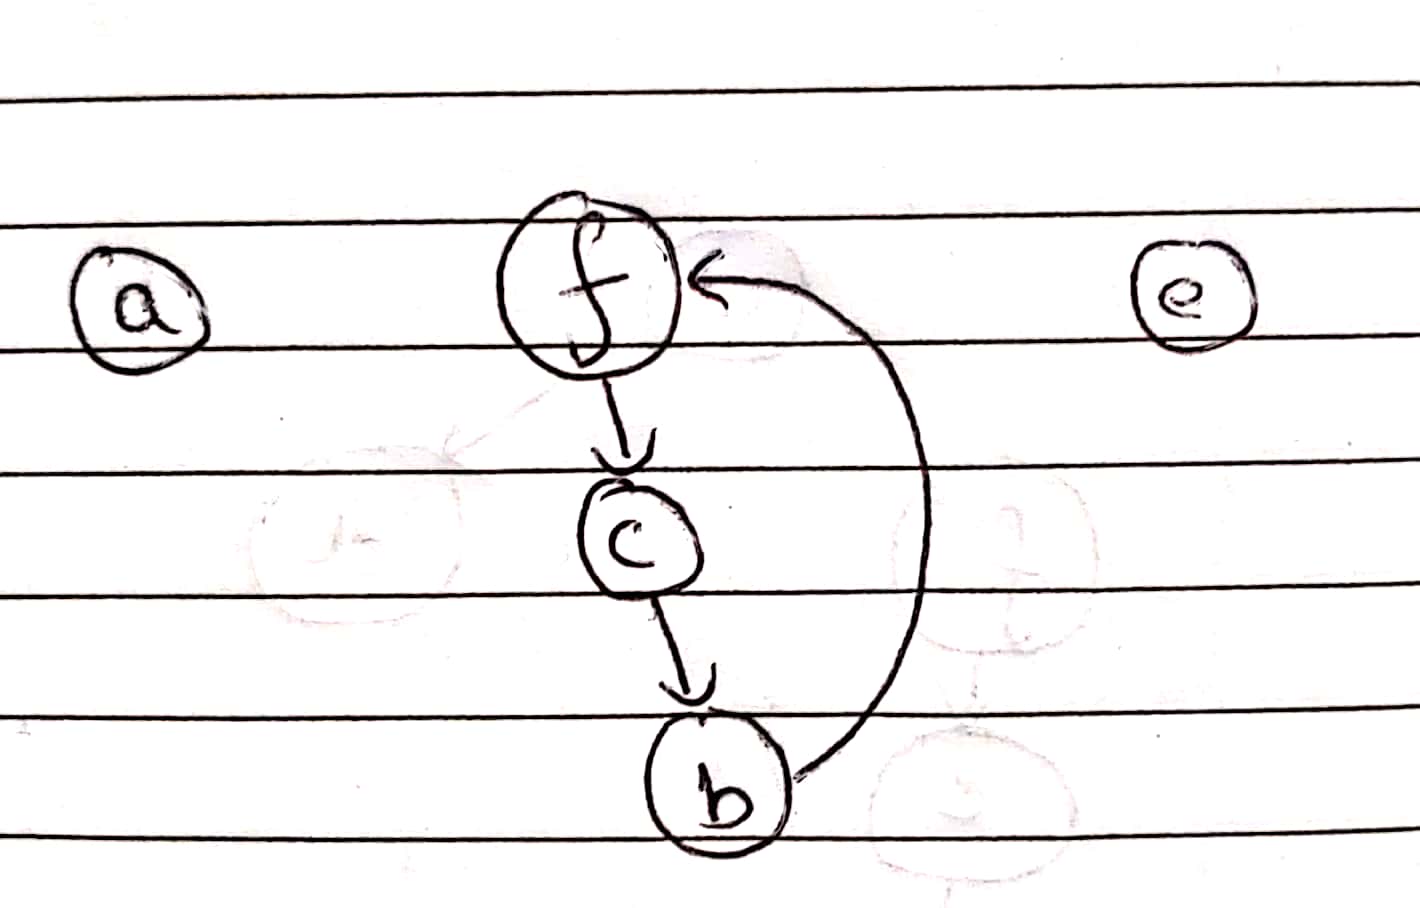 a f e
c
b